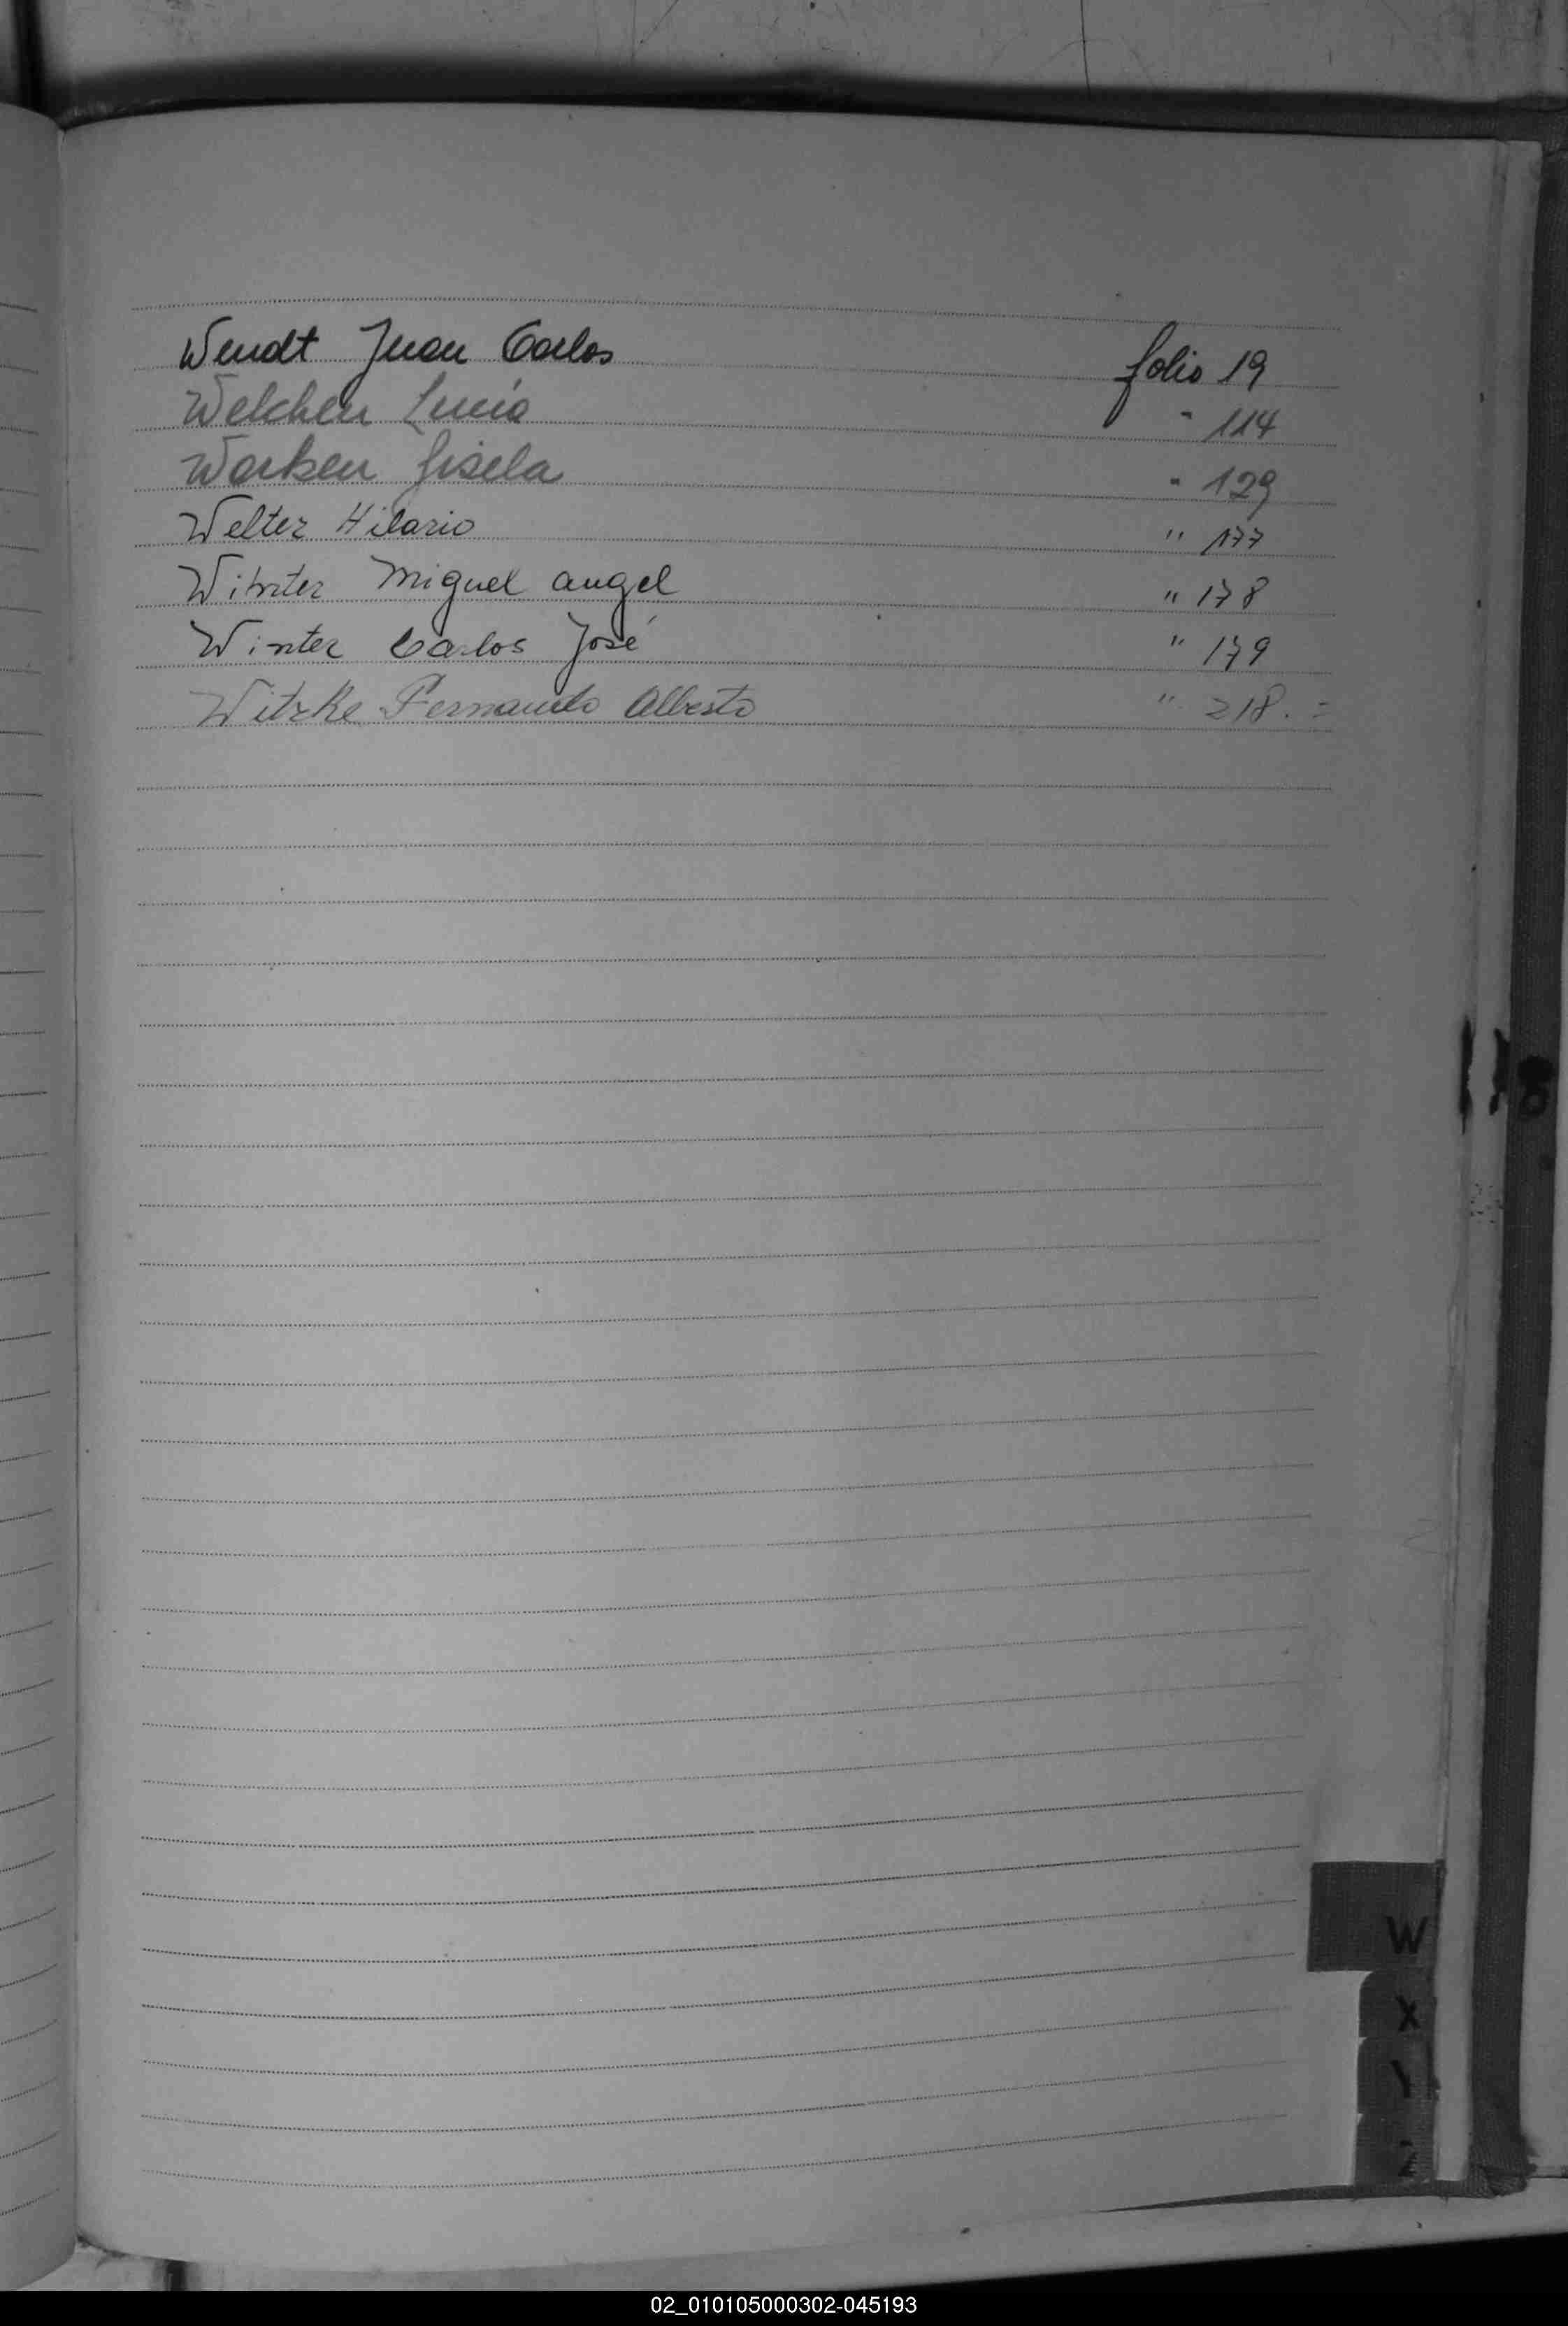 Wendt Juan Carlos folio 19
Welchen Lucía " 114
Warken Gisela " 129
Welter Hilario " 177
Winter Miguel angel " 178
Winter Carlos José " 179
Witzke Fernando Alberto " 218.=
W
X
Y
Z
02_010105000302-045193